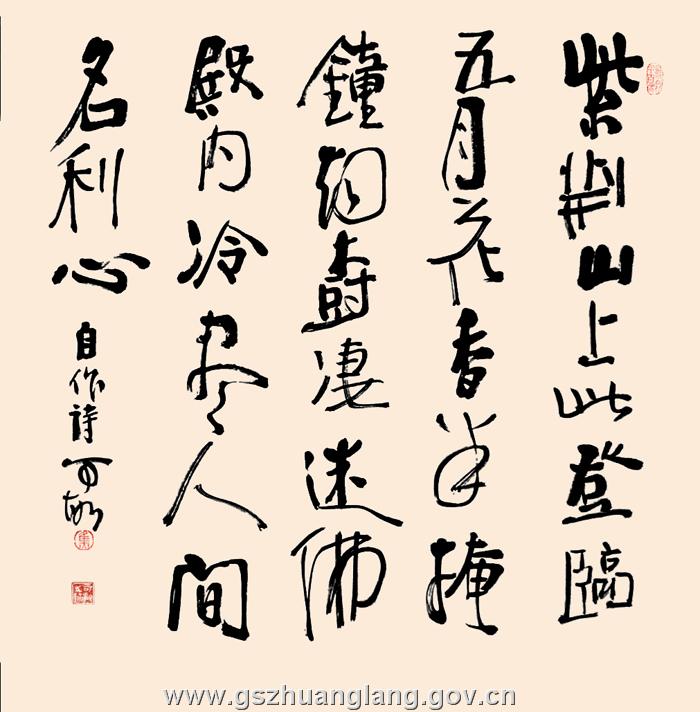 紫荆山上此登臨
五月花香半掩
鐘凄迷佛
殿内冷盡人間
名利心
自作詩
www.gszhuanglang.gov.cn